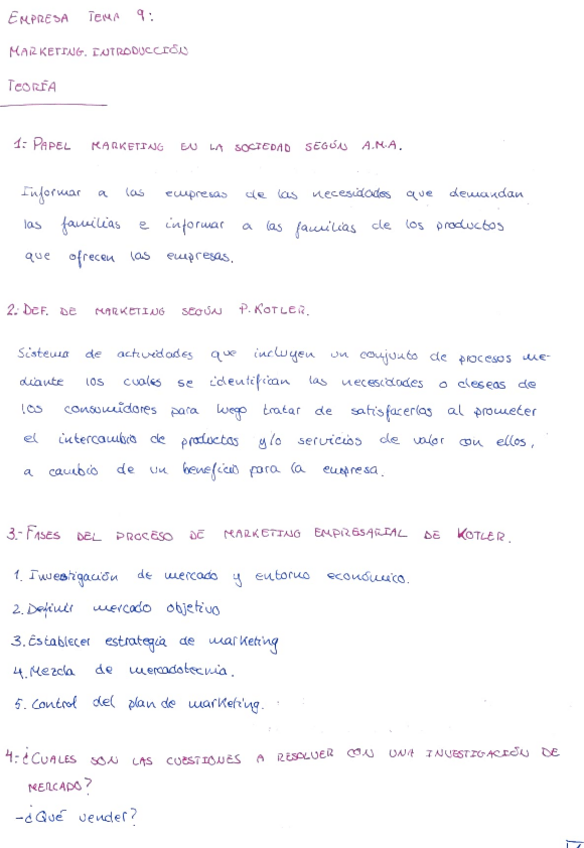 EMPRESA TEMA 9:
MARKETING. INTRODUCCIÓN
TEORÍA
1: PAPEL MARKETING EN LA SOCIEDAD SEGÚN A.M.A.
Informar a las empresas de las necesidades que demandan
las familias e informar a las familias de los productos
que ofrecen las empresas.
2: DEF. DE MARKETING SEGÚN P. KOTLER.
Sistema de actividades que incluyen un conjunto de procesos me-
diante los cuales se identifican las necesidades o deseos de
los consumidores para luego tratar de satisfacerlos al prometer
el intercambio de productos y/o servicios de valor con ellos,
a cambio de un beneficio para la empresa.
3.- FASES DEL PROCESO DE MARKETING EMPRESARIAL DE KOTLER.
1. Investigación de mercado y entorno económico.
2. Definir mercado objetivo
3. Establecer estrategia de marketing
4. Mezcla de mercadotecnia.
5. Control del plan de marketing.
4: ¿CUALES SON LAS CUESTIONES A RESOLVER CON UNA INVESTIGACIÓN DE
MERCADO?
-¿Qué vender?